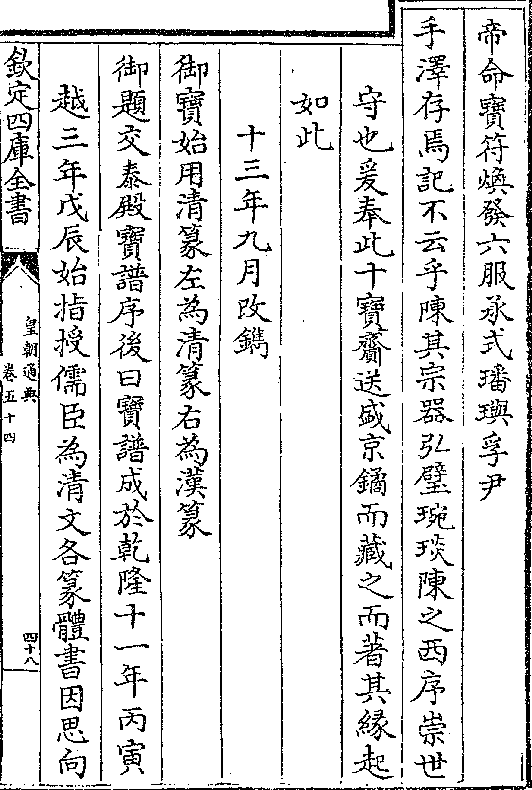 帝命寶符煥發六服承式璠璵孚尹
手澤存焉記不云乎陳其宗器弘璧琬琰陳之西序崇世
守也爰奉此十寶齎送盛京鐍而藏之而著其緣起
如此
十三年九月改鐫
御寶始用清篆左為清篆右為漢篆
御題交泰殿寶譜序後曰寶譜成於乾隆十一年丙寅
越三年戊辰始指授儒臣為清文各篆體書因思向
欽定四庫全書
皇朝通典
卷五十四
四十八